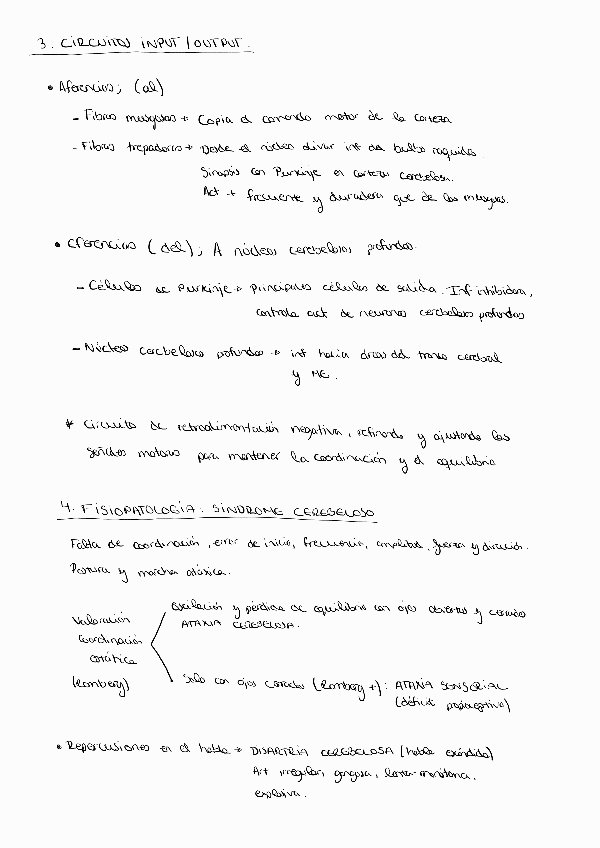 3. CIRCUITOS INPUT/OUTPUT.
• Aferencias; (al)
- Fibras musgosas → Copia el comando motor de la corteza
- Fibras trepadoras → Desde el núcleo olivar inf del bulbo raquídeo.
Sinapsis con Purkinje en corteza cerebelosa.
Act + frecuente y duradera que de las musgosas.
• Eferencias (del); A núcleos cerebelosos profundos.
- Células de Purkinje → principales células de salida. Inf inhibidora,
controla act de neuronas cerebelosas profundas
- Núcleos cerebelosos profundos → inf hacia áreas del tronco cerebral
y ME.
* Circuito de retroalimentación negativa, refinando y ajustando las
señales motoras para mantener la coordinación y el equilibrio
4. FISIOPATOLOGÍA. SÍNDROME CEREBELOSO
Falta de coordinación, error de inicio, frecuencia, amplitud, fuerza y dirección.
Postura y marcha atáxica.
Valoración
coordinación
estática
(Romberg)
Oscilación y pérdida de equilibrio con ojos abiertos y cerrados
ATAXIA CEREBELOSA.
Solo con ojos cerrados (Romberg +): ATAXIA SENSORIAL
(déficit propioceptivo)
• Repercusiones en el habla → DISARTRIA CEREBELOSA (habla escándida)
Art irregular, gangosa, lenta monótona,
explosiva.